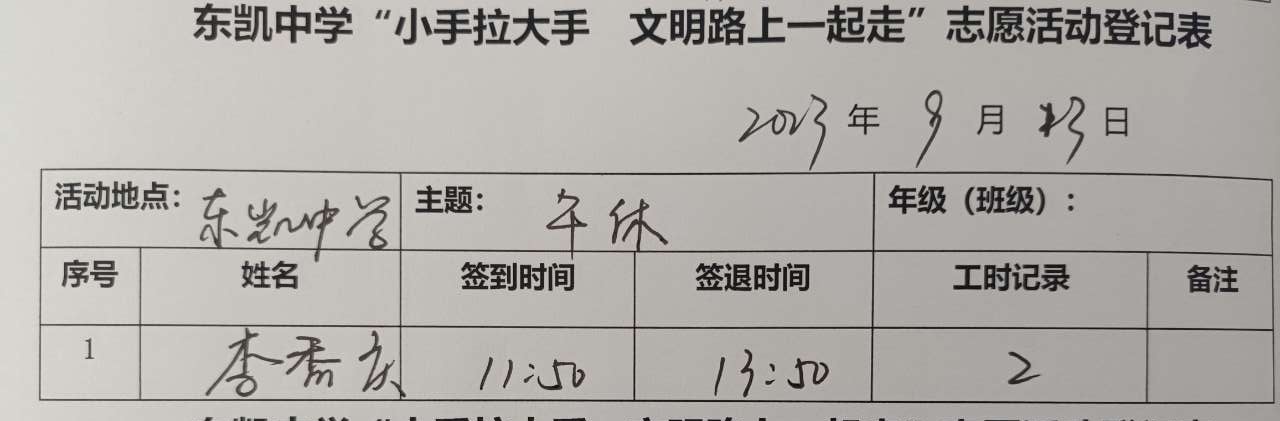 东凯中学“小手拉大手 文明路上一起走”志愿活动登记表
2023年 9月 13日
活动地点：东凯中学 主题：午休 年级（班级）：
序号 姓名 签到时间 签退时间 工时记录 备注
1 李香庆 11:50 13:50 2